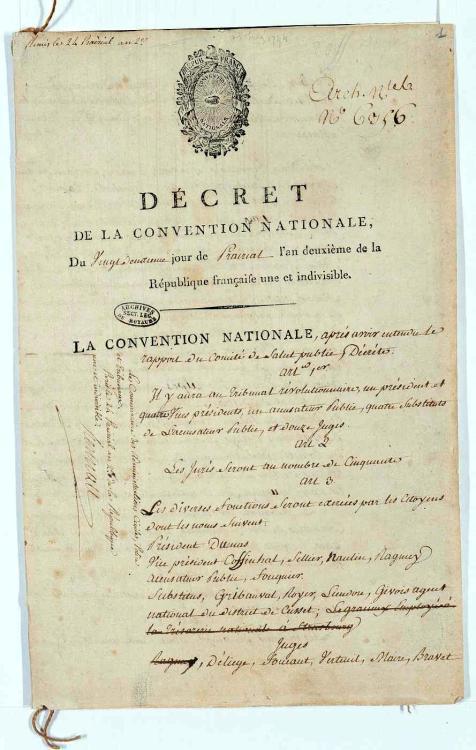 le 24 Prairial an 2e
1
Arch. Nles
N° 6056
CONVENTION
NATIONALE
DÉCRET
DE LA CONVENTION NATIONALE,
Du Vingt deuxieme jour de Prairial l'an deuxième de la
République françaiſe une et indiviſible.
ARCHIVES
SECT. LEG.
DU ROYAUME
LA CONVENTION NATIONALE, après avoir entendu le
rapport du Comité de Salut public, Décrète.
art. 1er
Il y aura au Tribunal révolutionnaire, un président et
quatre Vices présidents, un accusateur Public, quatre Substituts
de l'accusateur Public, et douze Juges
art 2
Les Jurés Seront au nombre de Cinquante
art 3
Les diverses fonctions Seront exercées par les Citoyens
dont les noms Suivent.
Président Dumas
Vice président Coffinhal, Sellier, Naulin, Ragmey
accusateur Public, Fouquier.
Substituts, Gribauval, Royer, Liendon, Givois agent
national du district de Cusset; Legraines Employé à
la Trésorerie nationale à Strasbourg
Juges
Ragmey, Deliege, Foucaut, Verteuil, Maire, Bravet
La Commission des Administrations Civiles, Police
et Tribunaux
Prairial an 2 de la République
une et indivisible.
Herman